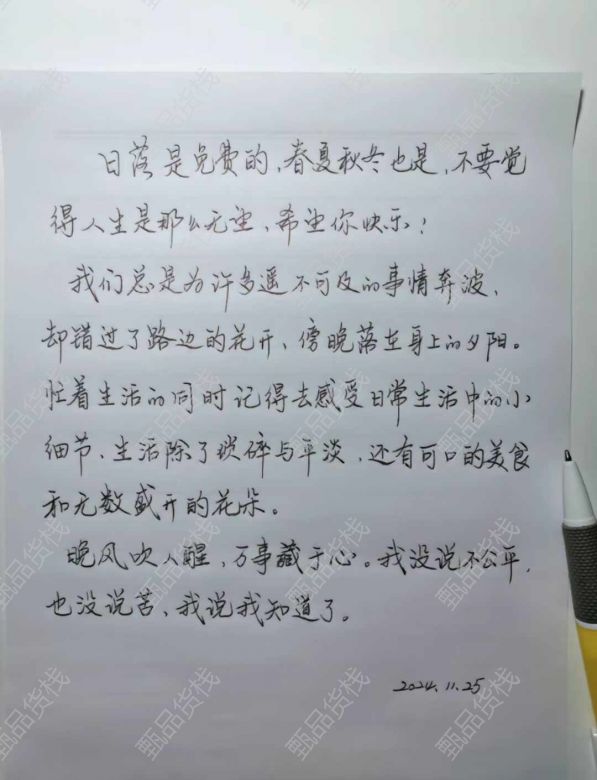 日落是免费的,春夏秋冬也是,不要觉
得人生是那么无望,希望你快乐!
我们总是为许多遥不可及的事情奔波,
却错过了路边的花开、傍晚落在身上的夕阳。
忙着生活的同时记得去感受日常生活中的小
细节、生活除了琐碎与平淡,还有可口的美食
和无数盛开的花朵。
晚风吹人醒,万事藏于心。我没说不公平,
也没说苦、我说我知道了。
2024.11.25
甄品货栈